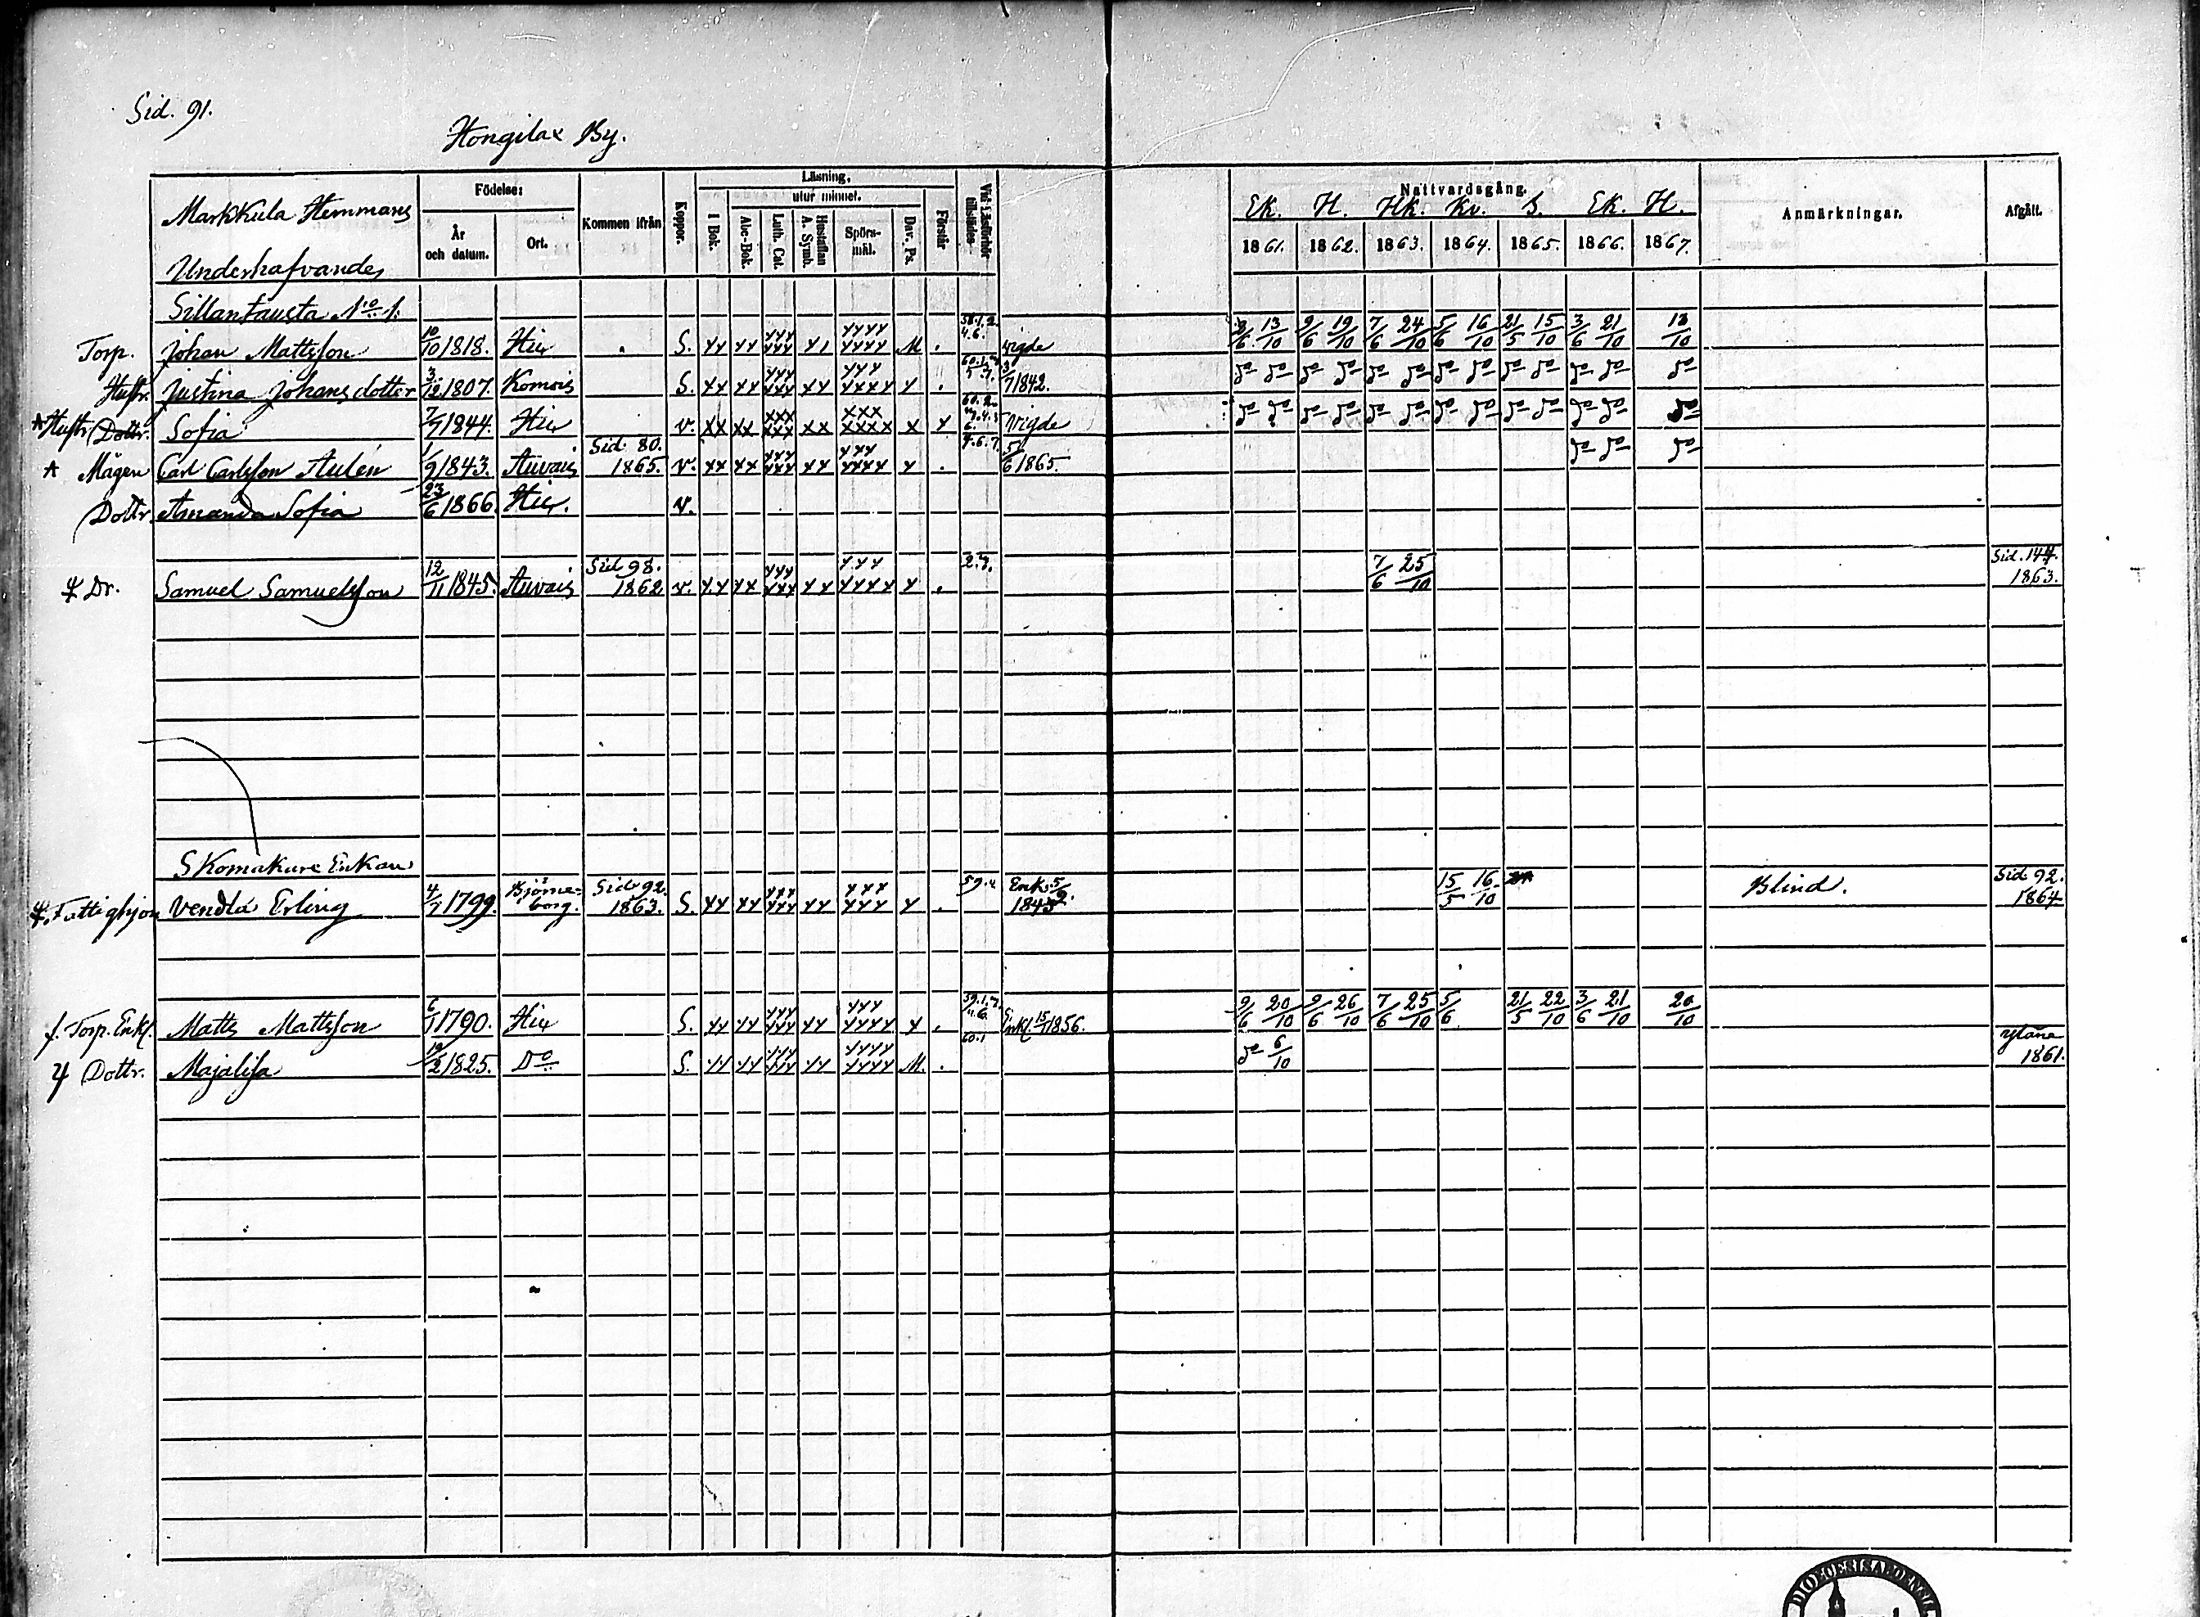 Sid. 91.
Hongilax By.
Markkula Hemmans
Underhafvandes
Födelse:
År och datum.
Ort.
Kommen ifrån
Koppor.
Läsning,
utur minnet.
I Bok.
Abc-Bok.
Luth. Cat.
Hustaflan A. Symb.
Spörsmål.
Dav. Ps.
Förstår
Vid Läsförhör tillstädes
Nattvardsgång.
Ek. H. Hk. Kv. S. Ek. H.
1861. 1862. 1863. 1864. 1865. 1866. 1867.
Anmärkningar.
Afgått.
Sillantausta No 1.
Torp. Johan Mattsson 10/10 1818. Hic S. xx xx xxx xxx x1 xxxx xxxx M . 4.6. vigde 2/6 13/10 9/6 19/10 7/6 24/10 5/6 16/10 21/5 15/10 3/6 21/10 13/10
Hustr. Justina Johansdotter 3/12 1807. Komois S. xx xx xxx xxx xx xxx xxxx x . /7 1842. do do do do do do do do do do do do do
Hustr (Dottr. Sofia 7/7 1844. Hic v. xx xx xxx xxx xx xxx xxxx x x Vigde do do do do do do do do do do do do do
Mågen Carl Carlsson Aulén 1/9 1843. Auvais Sid. 80. 1865. v. xx xx xxx xxx xx xxx xxxx x . 4.6.7. 5/6 1865. do do do
Dottr. Amanda Sofia 23/6 1866. Hic. v.
Dr. Samuel Samuelsson 12/11 1845. Auvais Sid 98. 1862 v. xx xx xxx xxx xx xxx xxxx x . 7/6 25/10 Sid. 144. 1863.
Skomakare Enkan
Fattighjon Vendla Erling 4/7 1799. Björneborg. Sid. 92. 1863. S. xx xx xxx xxx xx xxx xxxx x . Enk. 5/9. 15/5 16/10 Blind. Sid. 92. 1864
f. Torp. Enkl. Matts Mattsson 6/1 1790. Hic S. xx xx xxx xxx xx xxx xxxx x . Enkl. 15/11 1856. 9/6 20/10 9/6 26/10 7/6 25/10 5/6 21/5 22/10 3/6 21/10 20/10
Dottr. Majalisa 19/2 1825. Do S. xx xx xxx xxx xx xxxx xxxx M. . 60.1 do 6/10 Yläne 1861.